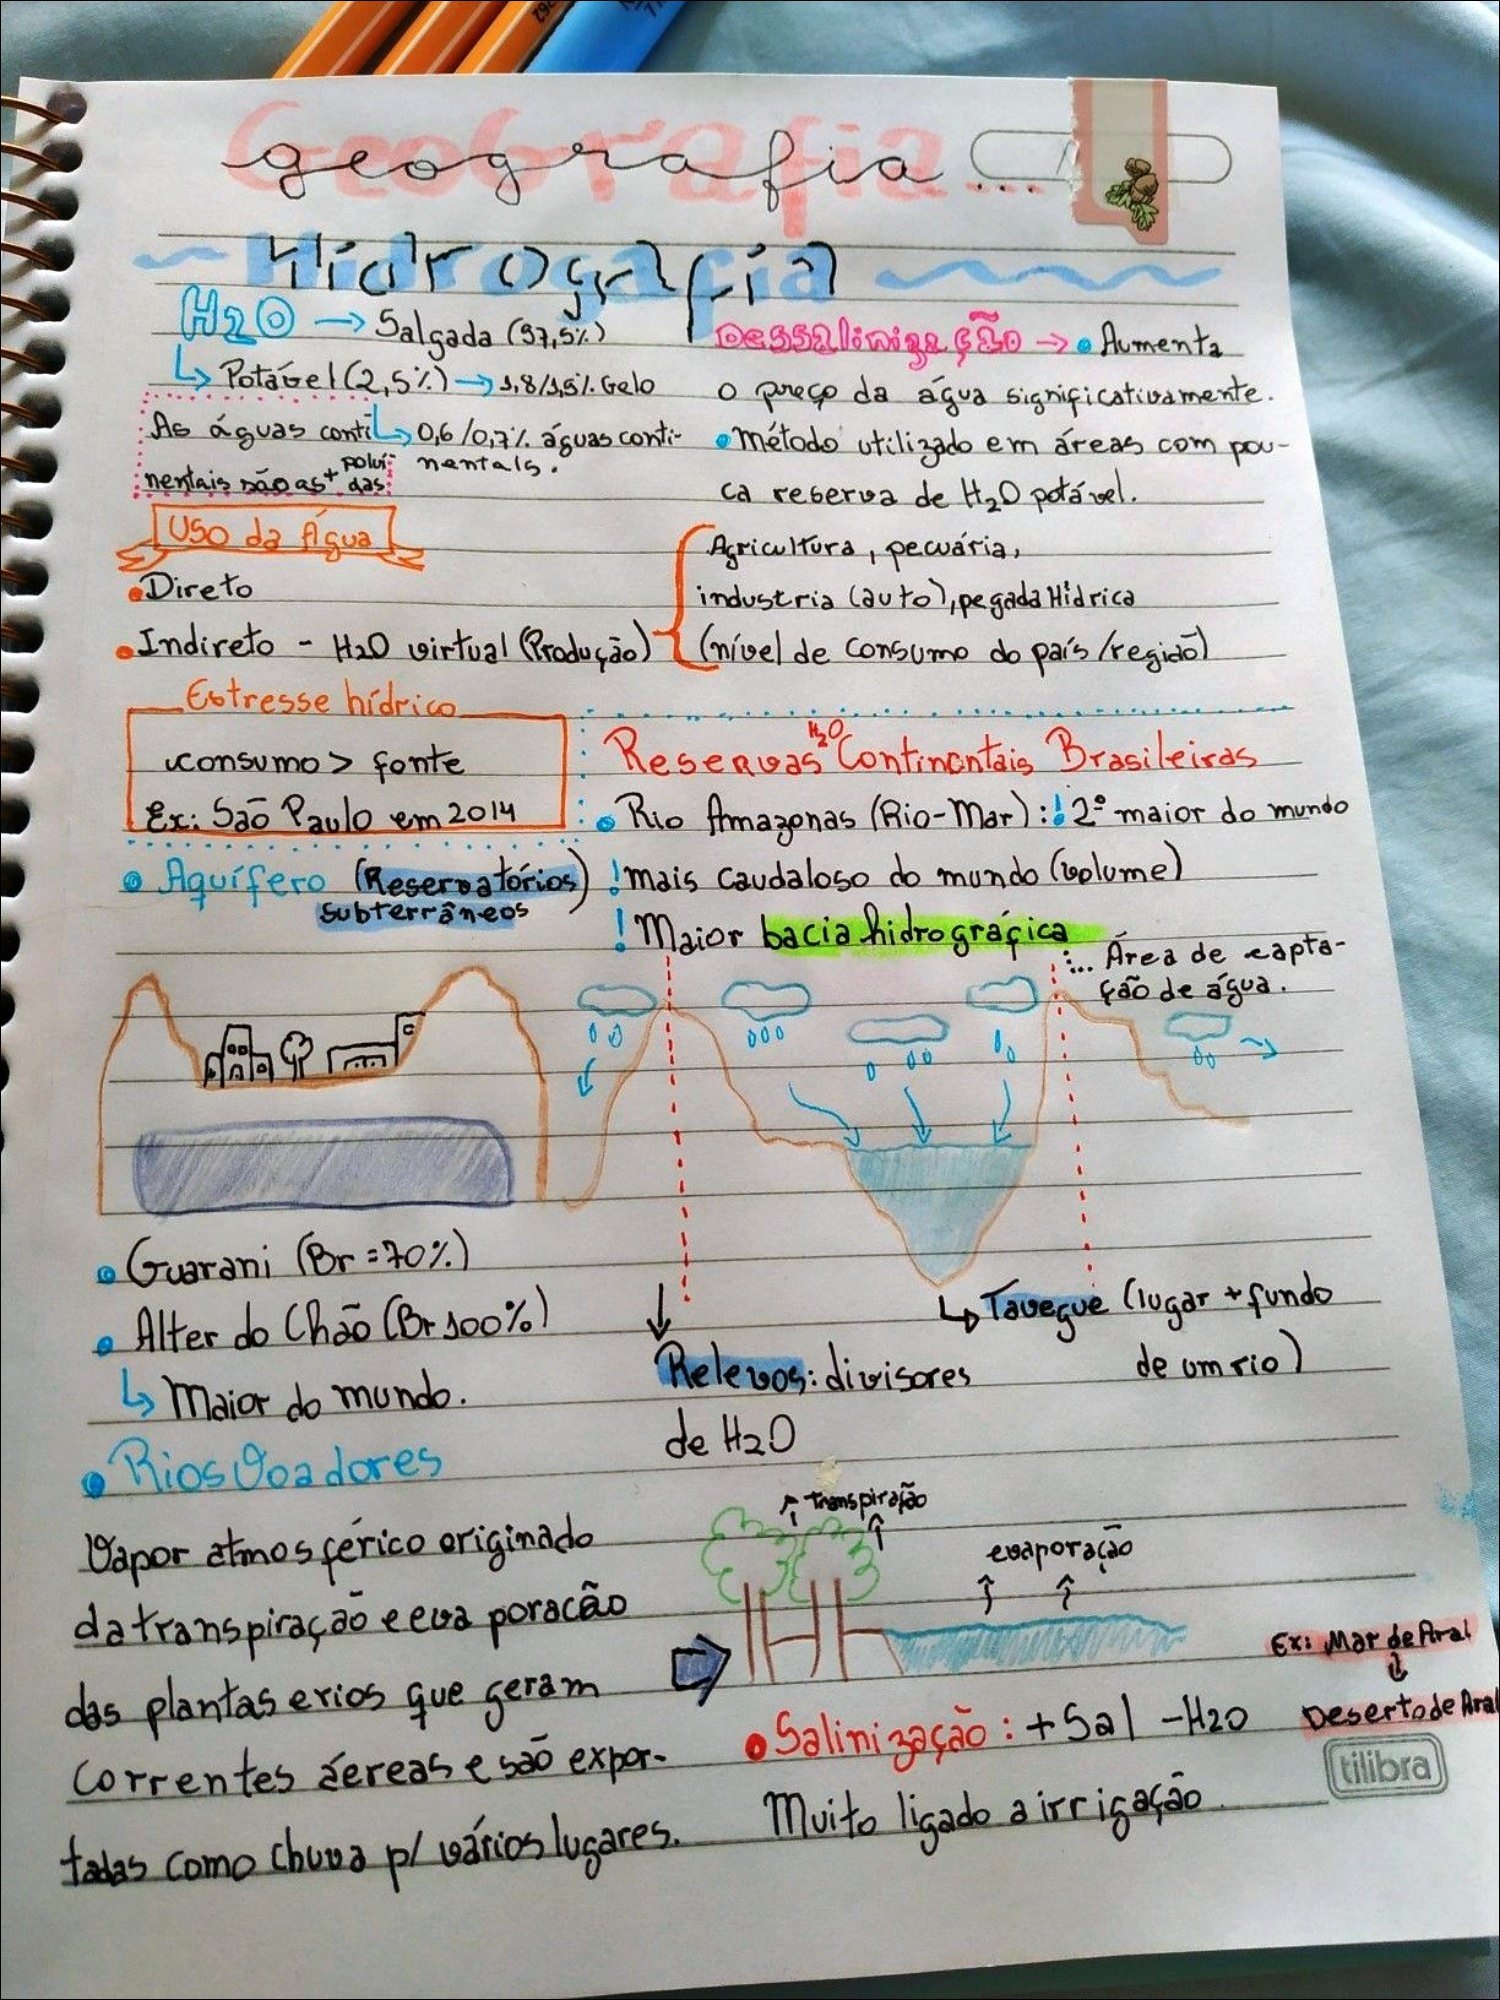 Geografia
geografia...
Hidrografia
H2O → Salgada (97,5%)
↳ Potável (2,5%) → 1,8/1,5% Gelo
↳ 0,6/0,7% águas conti-
nentais.
As águas conti
nentais são as + polui-
das
Dessalinização → • Aumenta
o preço da água significativamente.
• Método utilizado em áreas com pou-
ca reserva de H2O potável.
Uso da Água
• Direto
• Indireto - H2O virtual (Produção)
Agricultura, pecuária,
industria (auto), pegada Hídrica
(nível de consumo do país/região)
Estresse hídrico
consumo > fonte
Ex: São Paulo em 2014
Reservas H2O Continentais Brasileiras
• Rio Amazonas (Rio-Mar): ! 2º maior do mundo
! mais caudaloso do mundo (volume)
! Maior bacia hidrográfica
:... Área de capta-
ção de água.
• Aquífero (Reservatórios
subterrâneos)
• Guarani (Br = 70%)
• Alter do Chão (Br 100%)
↳ Maior do mundo.
Relevos: divisores
de H2O
↳ Tavegue (lugar + fundo
de um rio)
• Rios Voadores
Vapor atmosférico originado
da transpiração e evaporacão
das plantas e rios que geram
correntes áereas e são expor-
tadas como chuva p/ vários lugares.
transpiração
evaporação
• Salinização: + Sal - H2O
Muito ligado a irrigação
Ex: Mar de Aral
↓
Deserto de Aral
tilibra